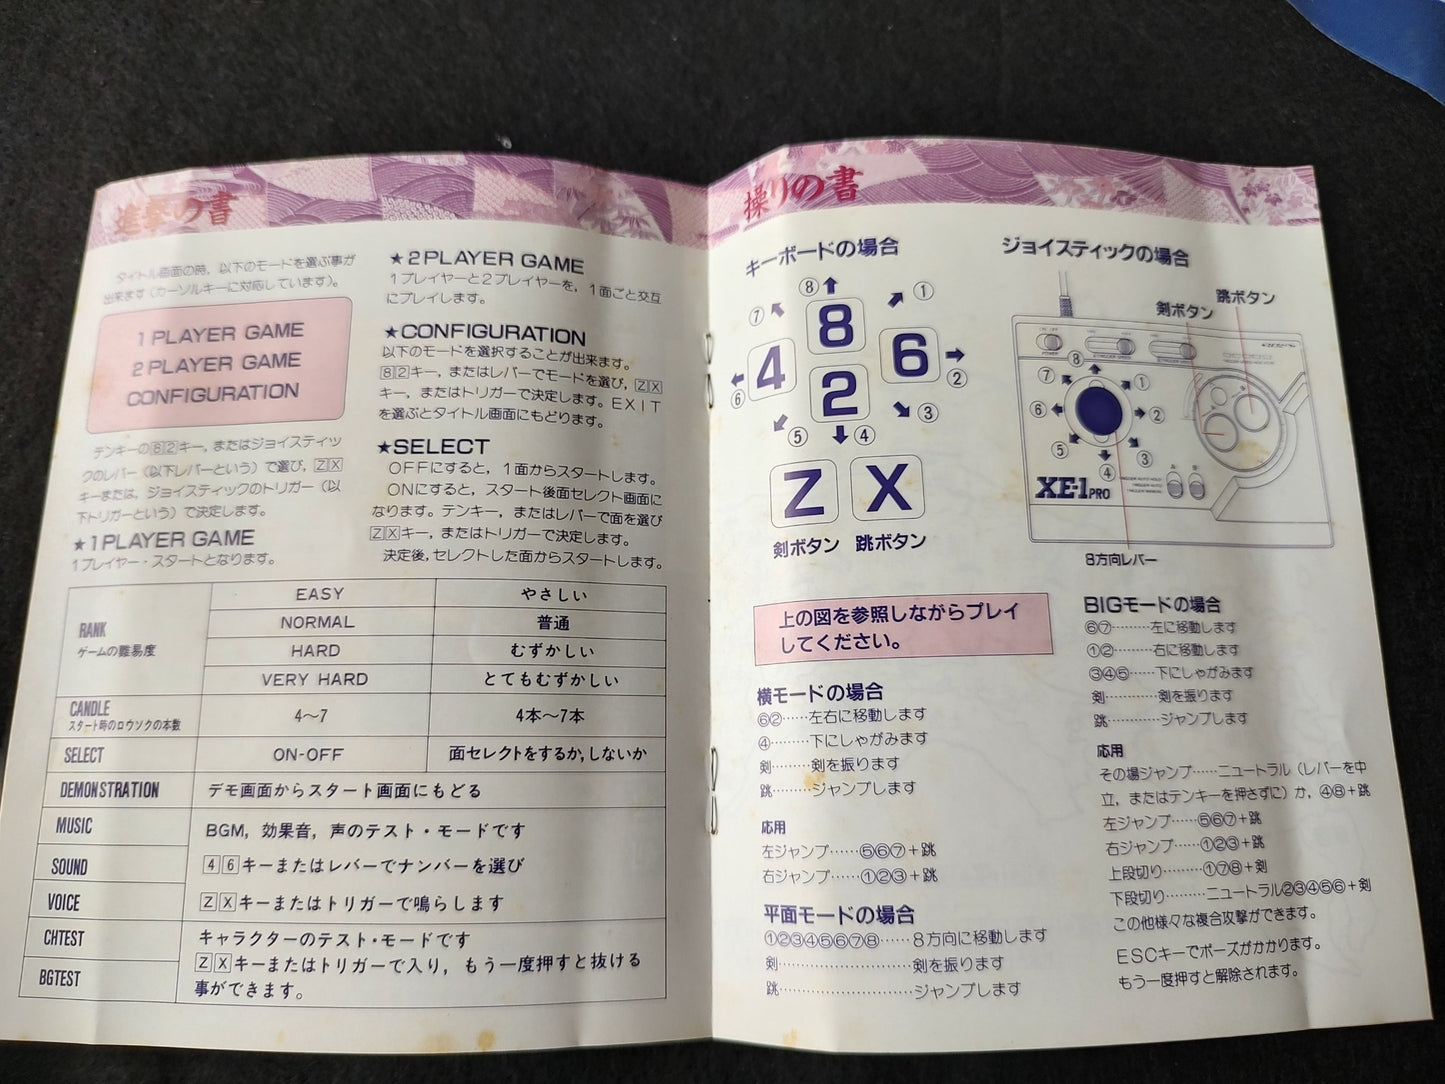 進撃の書
タイトル画面の時，以下のモードを選ぶ事が
出来ます（カーソルキーに対応しています）。
1 PLAYER GAME
2 PLAYER GAME
CONFIGURATION
テンキーの82キー，またはジョイスティッ
クのレバー（以下レバーという）で選び，ZX
キーまたは，ジョイスティックのトリガー（以
下トリガーという）で決定します。
★1PLAYER GAME
1プレイヤー・スタートとなります。
★2PLAYER GAME
1プレイヤーと2プレイヤーを，1面ごと交互
にプレイします。
★CONFIGURATION
以下のモードを選択することが出来ます。
82キー，またはレバーでモードを選び，ZX
キー，またはトリガーで決定します。EXIT
を選ぶとタイトル画面にもどります。
★SELECT
OFFにすると，1面からスタートします。
ONにすると，スタート後面セレクト画面に
なります。テンキー，またはレバーで面を選び
ZXキー，またはトリガーで決定します。
決定後，セレクトした面からスタートします。
RANK
ゲームの難易度
EASY やさしい
NORMAL 普通
HARD むずかしい
VERY HARD とてもむずかしい
CANDLE
スタート時のロウソクの本数
4〜7 4本〜7本
SELECT ON-OFF 面セレクトをするか，しないか
DEMONSTRATION デモ画面からスタート画面にもどる
MUSIC BGM，効果音，声のテスト・モードです
SOUND 46キーまたはレバーでナンバーを選び
VOICE ZXキーまたはトリガーで鳴らします
CHTEST キャラクターのテスト・モードです
BGTEST ZXキーまたはトリガーで入り，もう一度押すと抜ける
事ができます。
操りの書
キーボードの場合
⑧ ① ⑦
8
4 6
② ⑥
2
③ ⑤ ④
Z X
剣ボタン 跳ボタン
ジョイスティックの場合
跳ボタン
剣ボタン
ON OFF
POWER
⑧
⑦ ①
⑥ ②
⑤ ③
④
XE-1PRO
A B
8方向レバー
上の図を参照しながらプレイ
してください。
横モードの場合
⑥②……左右に移動します
④………下にしゃがみます
剣………剣を振ります
跳………ジャンプします
応用
左ジャンプ……⑤⑥⑦＋跳
右ジャンプ……①②③＋跳
平面モードの場合
①②③④⑤⑥⑦⑧……8方向に移動します
剣……………………剣を振ります
跳……………………ジャンプします
BIGモードの場合
⑥⑦………左に移動します
①②………右に移動します
③④⑤……下にしゃがみます
剣…………剣を振ります
跳…………ジャンプします
応用
その場ジャンプ……ニュートラル（レバーを中
立，またはテンキーを押さずに）か，④⑧＋跳
左ジャンプ……⑤⑥⑦＋跳
右ジャンプ……①②③＋跳
上段切り………①⑦⑧＋剣
下段切り………ニュートラル②③④⑤⑥＋剣
この他様々な複合攻撃ができます。
ESCキーでポーズがかかります。
もう一度押すと解除されます。